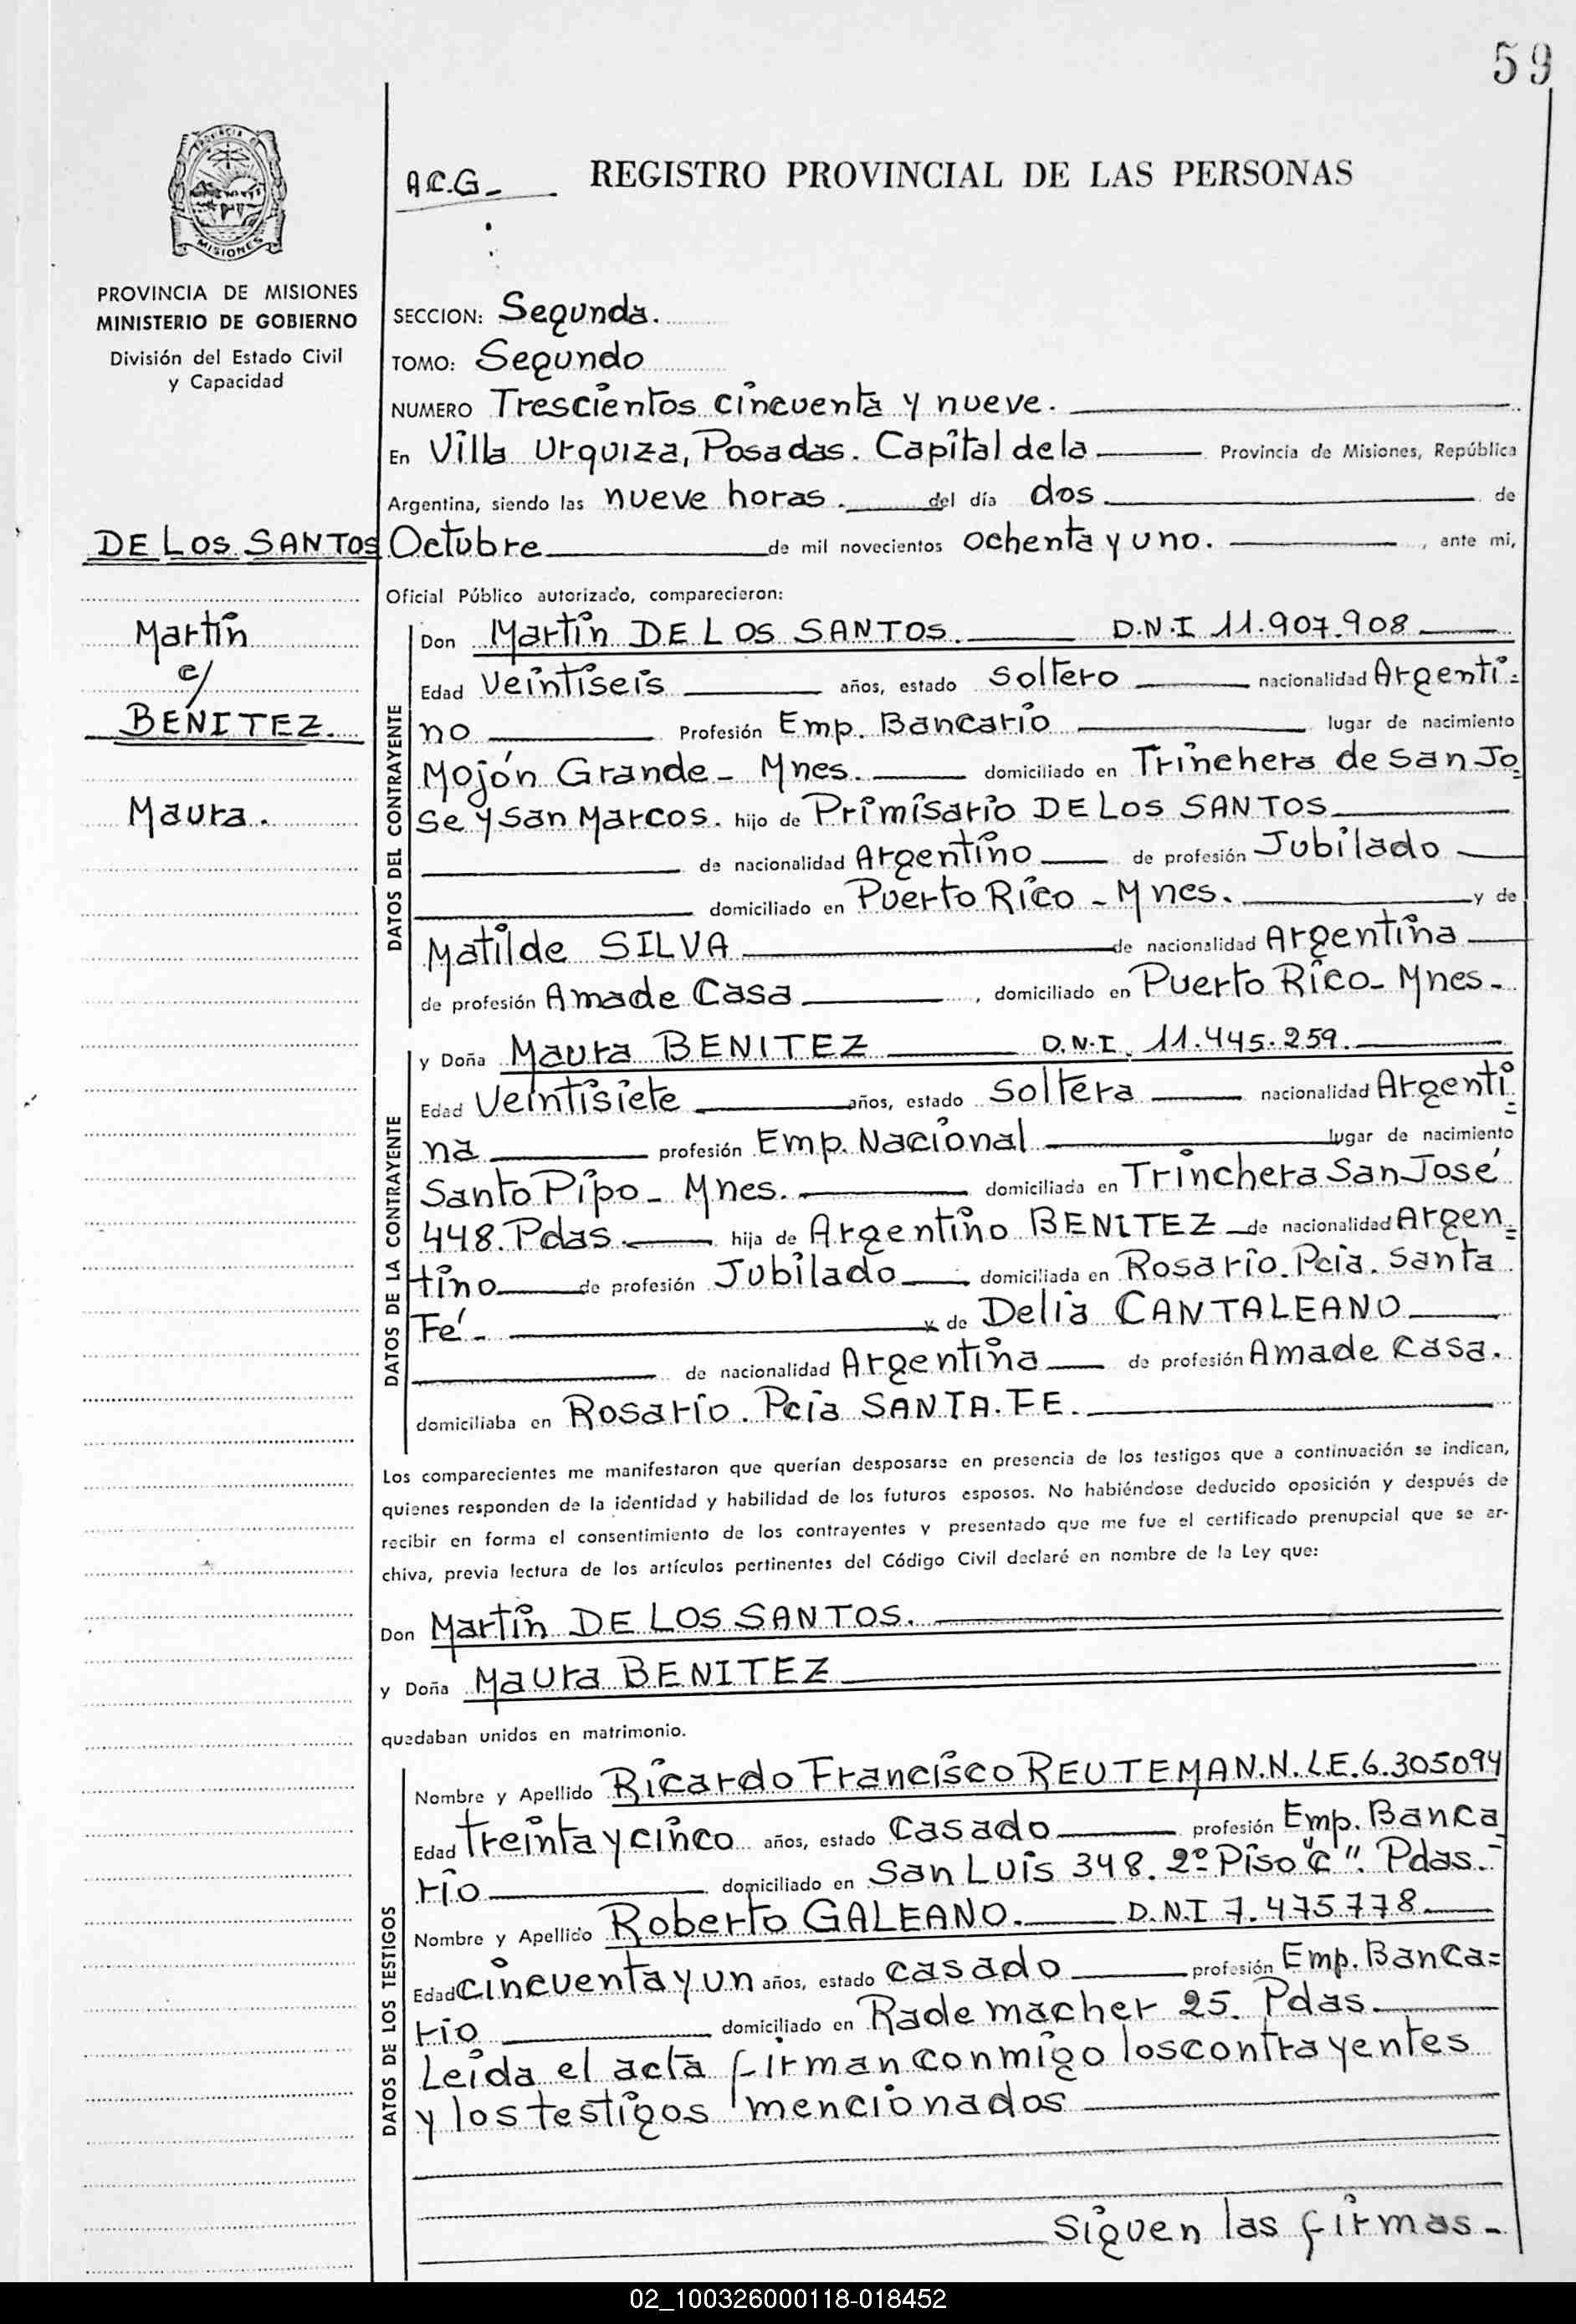 59
PROVINCIA DE
MISIONES
A.C.G-
REGISTRO PROVINCIAL DE LAS PERSONAS
PROVINCIA DE MISIONES
MINISTERIO DE GOBIERNO
División del Estado Civil
y Capacidad
DE LOS SANTOS
Martín
c/
BENITEZ.
Maura.
SECCION: Segunda.
TOMO: Segundo
NUMERO Trescientos cincuenta y nueve.
En Villa Urquiza, Posadas. Capital de la Provincia de Misiones, República
Argentina, siendo las nueve horas. del día dos. de
Octubre de mil novecientos ochenta y uno. , ante mi,
Oficial Público autorizado, comparecieron:
DATOS DEL CONTRAYENTE
Don Martín DE LOS SANTOS. D.N.I 11.907.908
Edad Veintiseis años, estado Soltero nacionalidad Argenti=
no Profesión Emp. Bancario lugar de nacimiento
Mojón Grande - Mnes. domiciliado en Trinchera de San Jo
se y San Marcos. hijo de Primisario DE LOS SANTOS
de nacionalidad Argentino de profesión Jubilado
domiciliado en Puerto Rico - Mnes. y de
Matilde SILVA de nacionalidad Argentina
de profesión Ama de Casa , domiciliado en Puerto Rico - Mnes.
DATOS DE LA CONTRAYENTE
y Doña Maura BENITEZ D.N.I. 11.445.259.
Edad Veintisiete años, estado Soltera nacionalidad Argenti=
na profesión Emp. Nacional lugar de nacimiento
Santo Pipo - Mnes. domiciliada en Trinchera San José
448. Pdas. hija de Argentino BENITEZ de nacionalidad Argen=
tino de profesión Jubilado domiciliada en Rosario. Pcia. Santa
Fé. y de Delia CANTALEANO
de nacionalidad Argentina de profesión Ama de Casa.
domiciliaba en Rosario. Pcia SANTA. FE.
Los comparecientes me manifestaron que querían desposarse en presencia de los testigos que a continuación se indican,
quienes responden de la identidad y habilidad de los futuros esposos. No habiéndose deducido oposición y después de
recibir en forma el consentimiento de los contrayentes y presentado que me fue el certificado prenupcial que se ar-
chiva, previa lectura de los artículos pertinentes del Código Civil declaré en nombre de la Ley que:
Don Martín DE LOS SANTOS.
y Doña Maura BENITEZ
quedaban unidos en matrimonio.
DATOS DE LOS TESTIGOS
Nombre y Apellido Ricardo Francisco REUTEMAN.N. L.E. 6.305094
Edad treinta y cinco años, estado Casado profesión Emp. Banca
rio domiciliado en San Luis 348. 2º Piso "C". Pdas.-
Nombre y Apellido Roberto GALEANO. D.N.I 7.475.778
Edad cincuenta y un años, estado casado profesión Emp. Banca=
rio domiciliado en Rademacher 25. Pdas.
Leida el acta firman conmigo los contrayentes
y los testigos mencionados
Siguen las firmas-
02_100326000118-018452